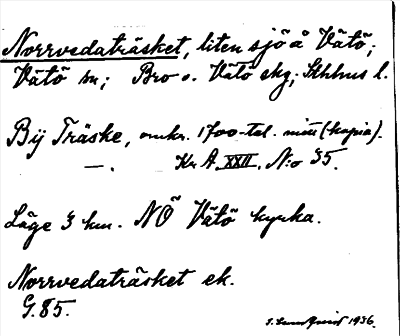 Norrvedaträsket, liten sjö å Vätö;
Vätö sn; Bro o. Vätö skg; Sthlms l.
Bÿ Träske, omkr. 1700-tal. (kopia).
—. Kr. A. XXII. N:o 35.
Läge 3 km. NÖ Vätö kyrka.
Norrvedaträsket ek.
G. 85.
1936.